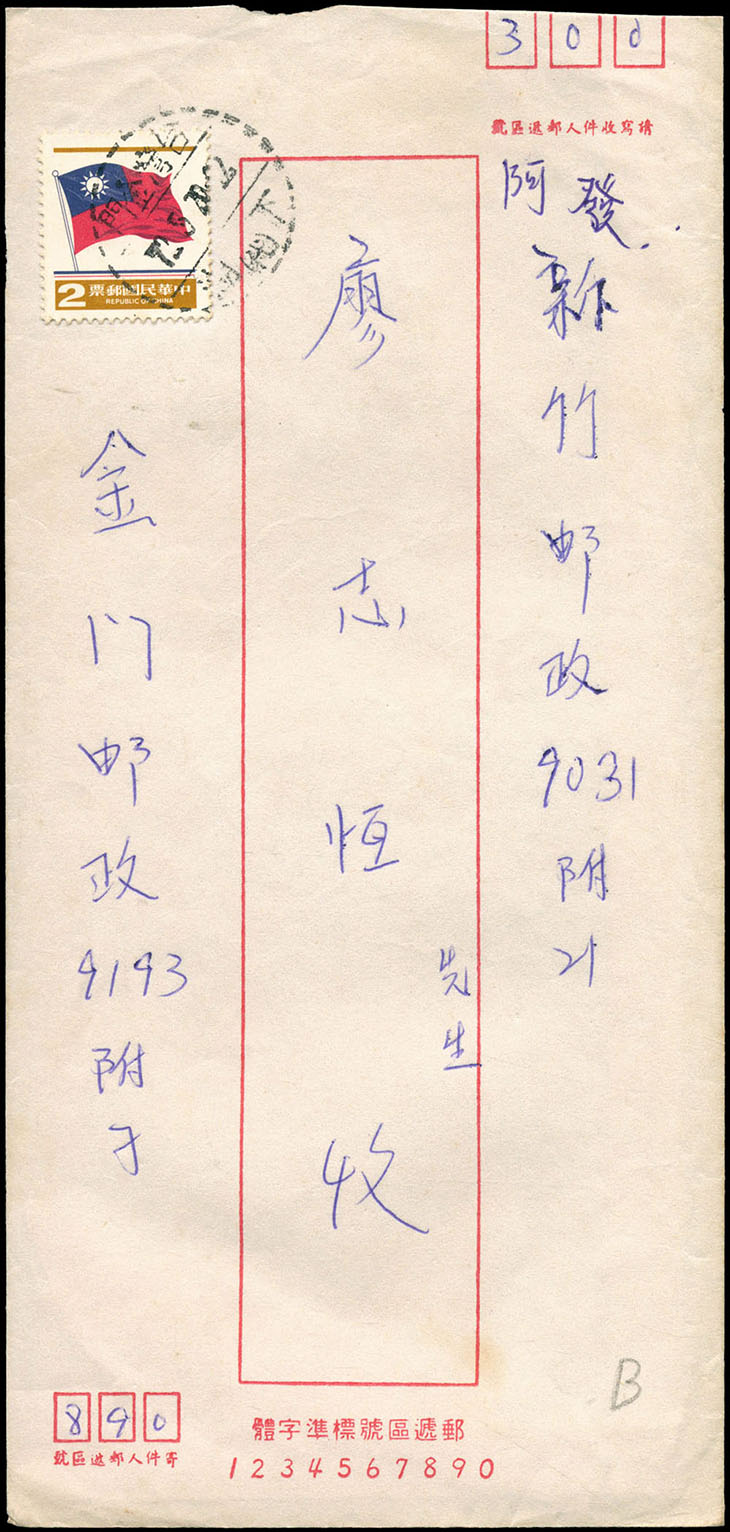 300
號區遞郵人件收寫請
阿發
新竹邮政9031附21
廖志恒先生收
2 票郵國民華中
REPUBLIC OF CHINA
金门邮政9193附
890
號區遞郵人件寄
體字準標號區遞郵
1234567890
B